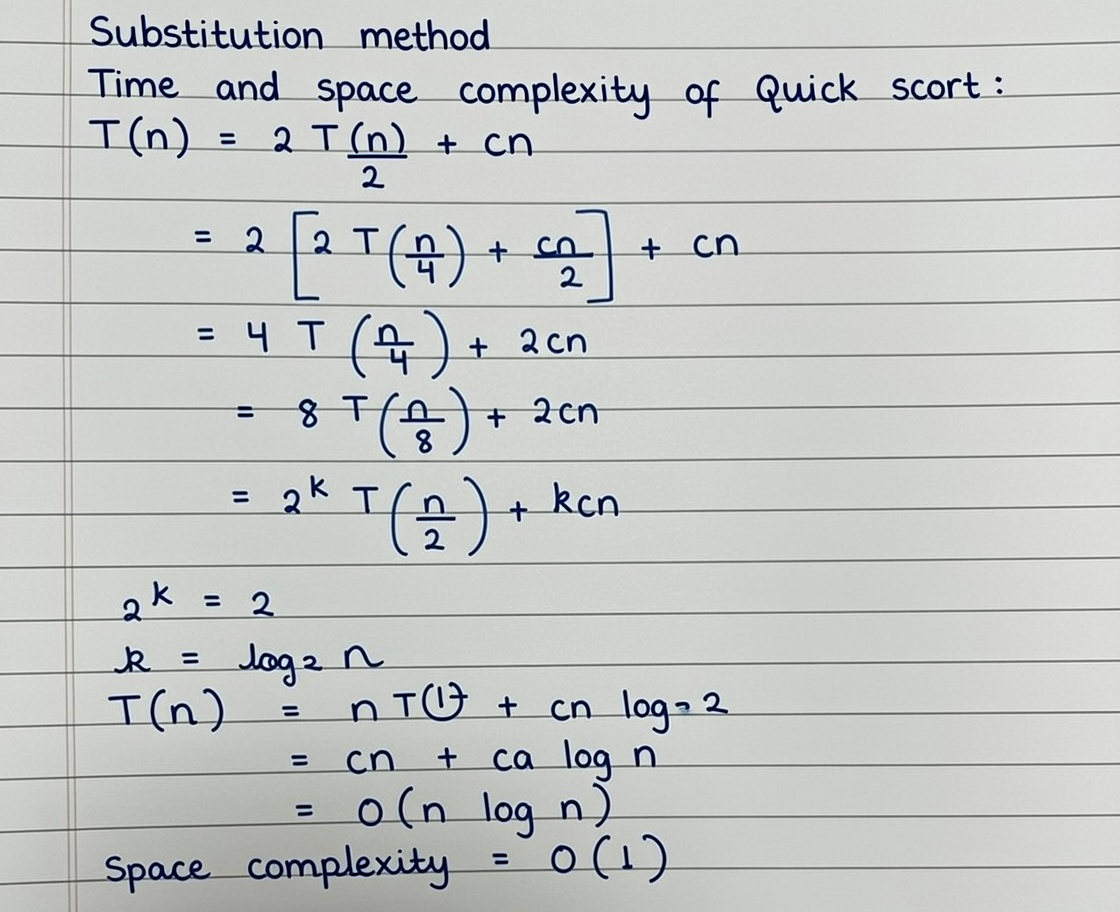 Substitution method
Time and space complexity of Quick scort :
T(n) = 2 T (n)/2 + cn
= 2 [2 T(n/4) + cn/2] + cn
= 4 T (n/4) + 2cn
= 8 T(n/8) + 2cn
= 2^k T(n/2) + kcn
2^k = 2
k = log2 n
T(n) = n T(1) + cn log2 2
= cn + ca log n
= O(n log n)
Space complexity = O(1)